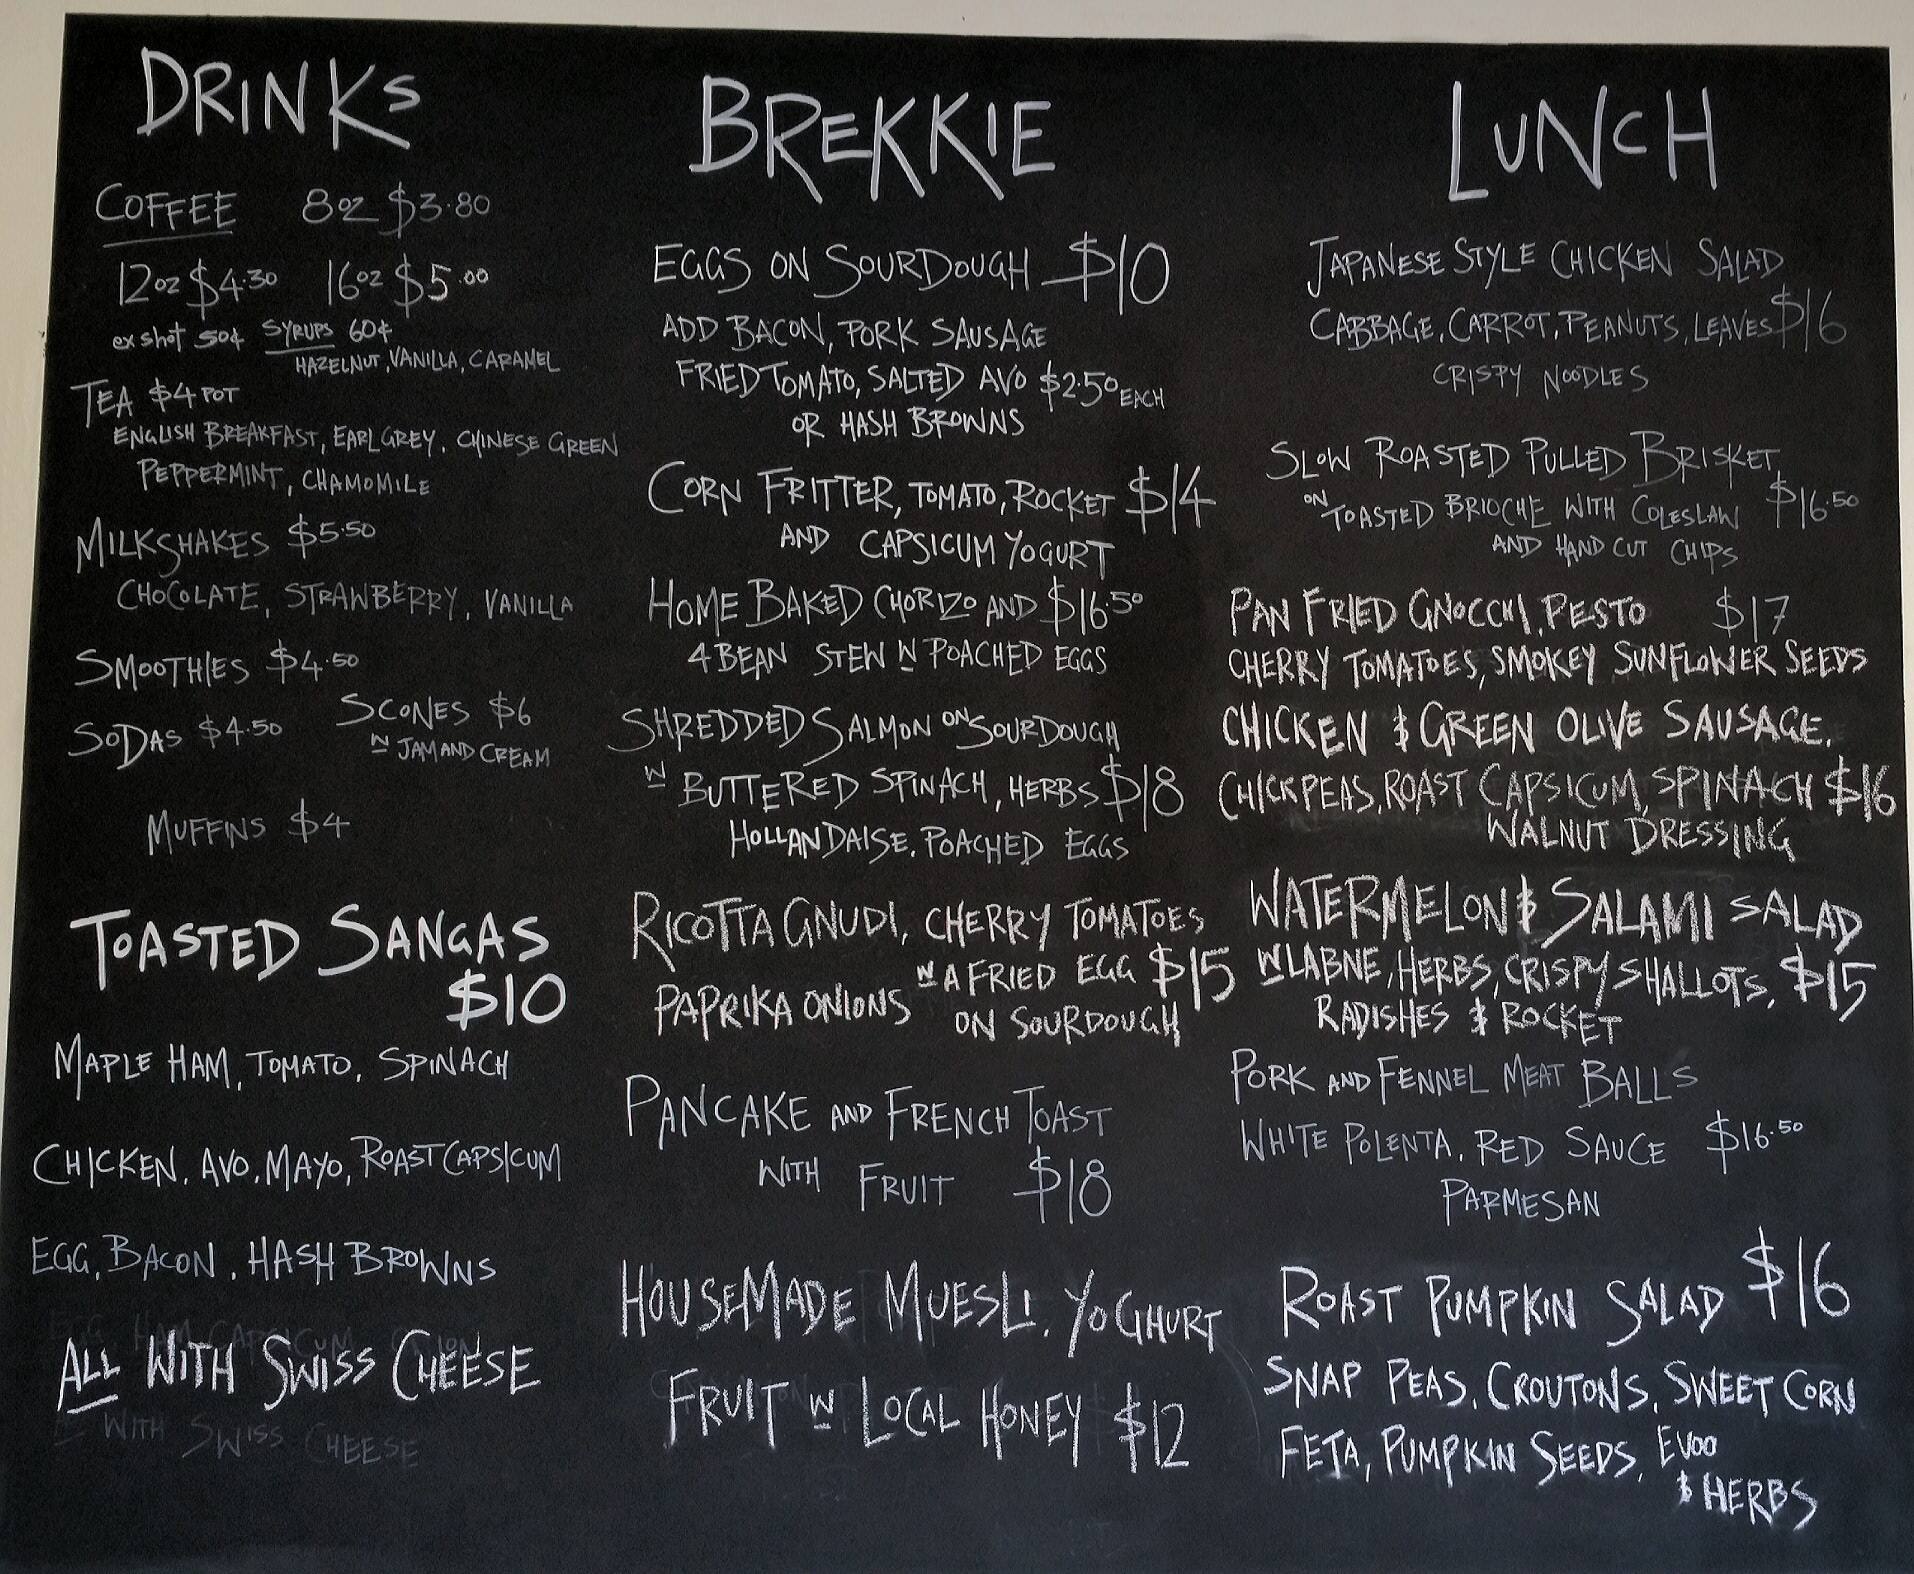 DRINKS
COFFEE 8oz $3.80
12oz $4.30 16oz $5.00
ex shot 50¢ SYRUPS 60¢
HAZELNUT, VANILLA, CARAMEL
TEA $4 POT
ENGLISH BREAKFAST, EARL GREY, CHINESE GREEN
PEPPERMINT, CHAMOMILE
MILKSHAKES $5.50
CHOCOLATE, STRAWBERRY, VANILLA
SMOOTHIES $4.50
SODAS $4.50
SCONES $6
W JAM AND CREAM
MUFFINS $4
TOASTED SANGAS
$10
MAPLE HAM, TOMATO, SPINACH
CHICKEN, AVO, MAYO, ROAST CAPSICUM
EGG, BACON, HASH BROWNS
ALL WITH SWISS CHEESE
WITH SWISS CHEESE
BREKKIE
EGGS ON SOURDOUGH $10
ADD BACON, PORK SAUSAGE
FRIED TOMATO, SALTED AVO $2.50 EACH
OR HASH BROWNS
CORN FRITTER, TOMATO, ROCKET $14
AND CAPSICUM YOGURT
HOME BAKED CHORIZO AND $16.50
4 BEAN STEW W POACHED EGGS
SHREDDED SALMON ON SOURDOUGH
W BUTTERED SPINACH, HERBS $18
HOLLANDAISE, POACHED EGGS
RICOTTA GNUDI, CHERRY TOMATOES
W A FRIED EGG $15
PAPRIKA ONIONS ON SOURDOUGH
PANCAKE AND FRENCH TOAST
WITH FRUIT $18
HOUSEMADE MUESLI, YOGHURT
FRUIT W LOCAL HONEY $12
LUNCH
JAPANESE STYLE CHICKEN SALAD
CABBAGE, CARROT, PEANUTS, LEAVES $16
CRISPY NOODLES
SLOW ROASTED PULLED BRISKET,
ON TOASTED BRIOCHE WITH COLESLAW $16.50
AND HAND CUT CHIPS
PAN FRIED GNOCCHI, PESTO $17
CHERRY TOMATOES, SMOKEY SUNFLOWER SEEDS
CHICKEN & GREEN OLIVE SAUSAGE,
CHICKPEAS, ROAST CAPSICUM, SPINACH $16
WALNUT DRESSING
WATERMELON & SALAMI SALAD
W LABNE, HERBS, CRISPY SHALLOTS, $15
RADISHES & ROCKET
PORK AND FENNEL MEAT BALLS
WHITE POLENTA, RED SAUCE $16.50
PARMESAN
ROAST PUMPKIN SALAD $16
SNAP PEAS, CROUTONS, SWEET CORN
FETA, PUMPKIN SEEDS, EVOO
& HERBS